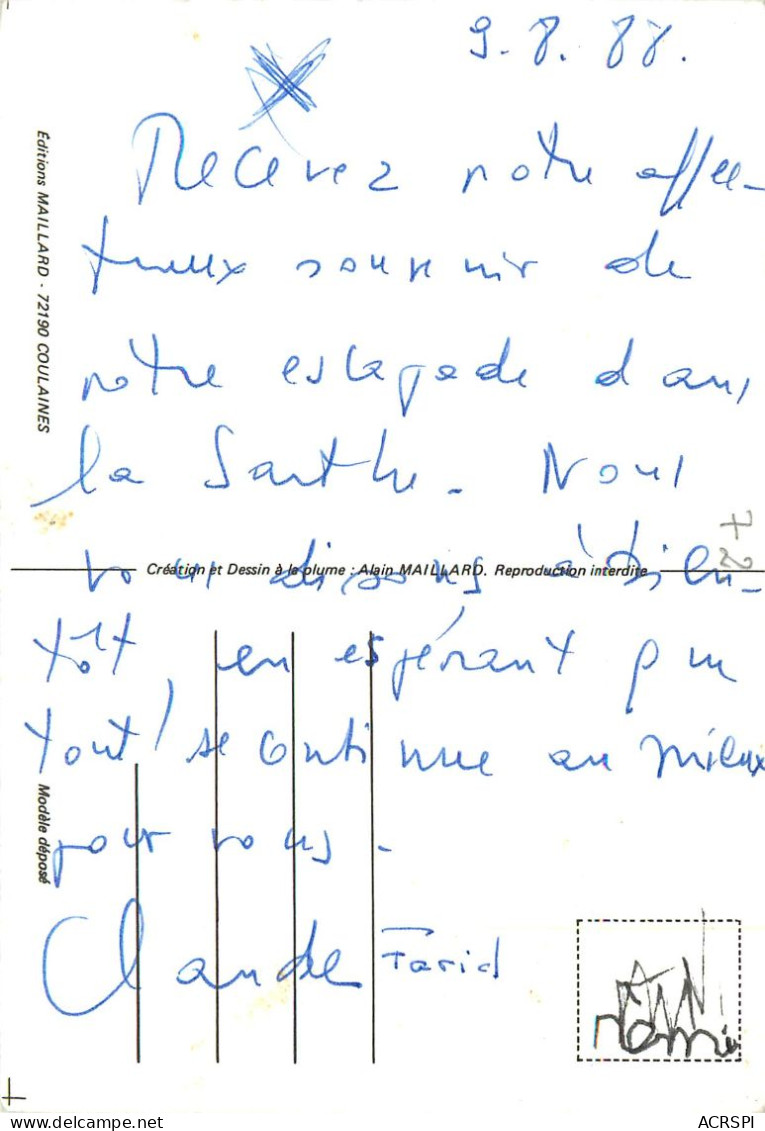 9.8.88.
Recevez notre affec-
tueux souvenir de
notre escapade dans
la Sarthe. Nous
vous disons à bien-
tôt, en espérant que
tout se continue au mieux
pour vous.
Claude Farid
Editions MAILLARD - 72190 COULAINES
Création et Dessin à la plume : Alain MAILLARD. Reproduction interdite
Modèle déposé
72
ACRSPI